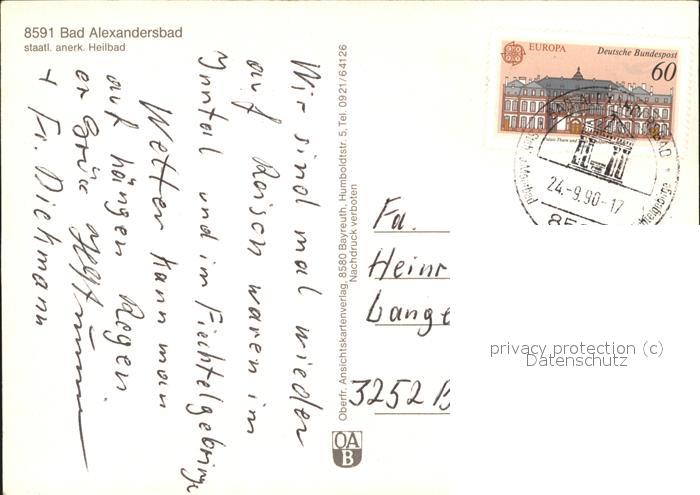 8591 Bad Alexandersbad
staatl. anerk. Heilbad
Wir sind mal wieder
auf Reisen waren im
Inntal und im Fichtelgebirge
Wetter kann man
auf hängen Regen
er Grüße
+ Fr. Diekmann
Oberfr. Ansichtskartenverlag, 8580 Bayreuth, Humboldtstr. 5, Tel. 0921/64126
Nachdruck verboten
OA
B
EUROPA
Deutsche Bundespost
60
24.-9.90-17
Fa.
Heinr
Lange
3252 B
privacy protection (c)
Datenschutz